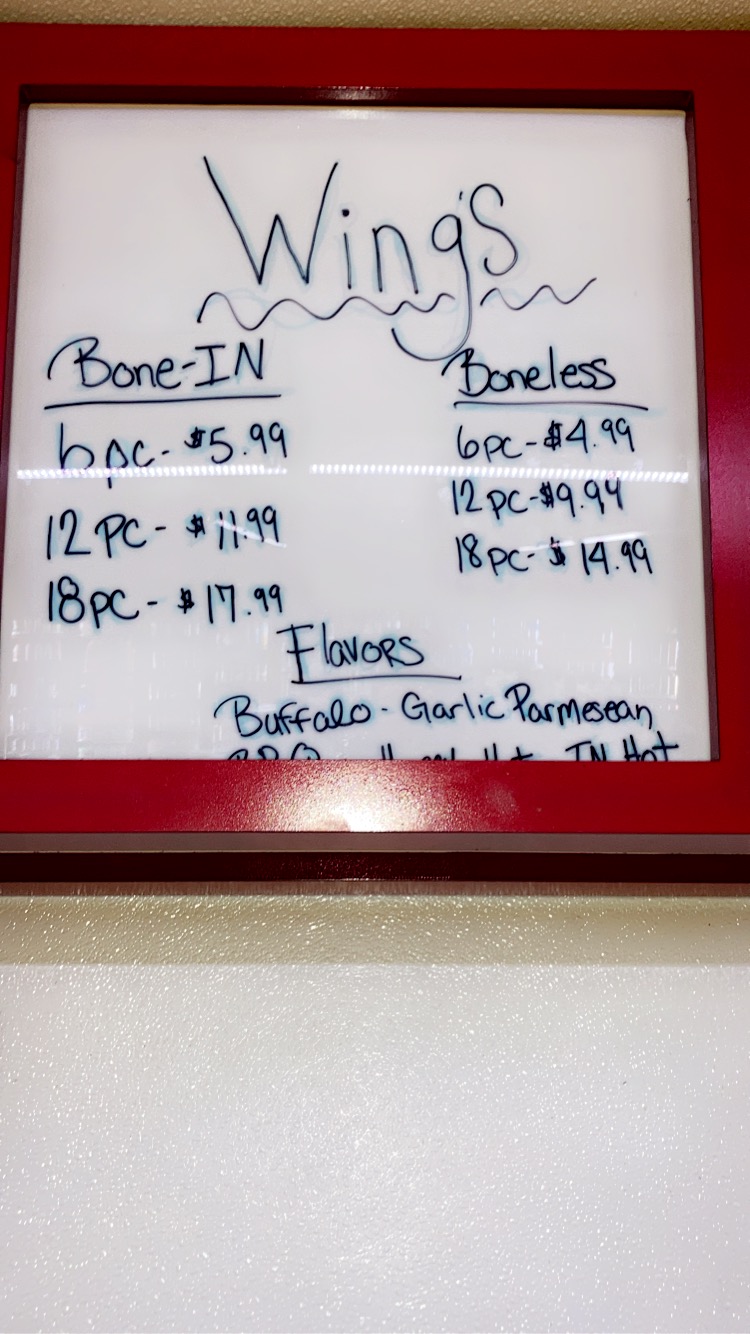 Wing's
Bone-IN
6pc- $5.99
12 PC- $11.99
18pc- $17.99
Boneless
6pc-$4.99
12pc-$9.99
18pc- $14.99
Flavors
Buffalo - Garlic Parmesean
BBQ Hot